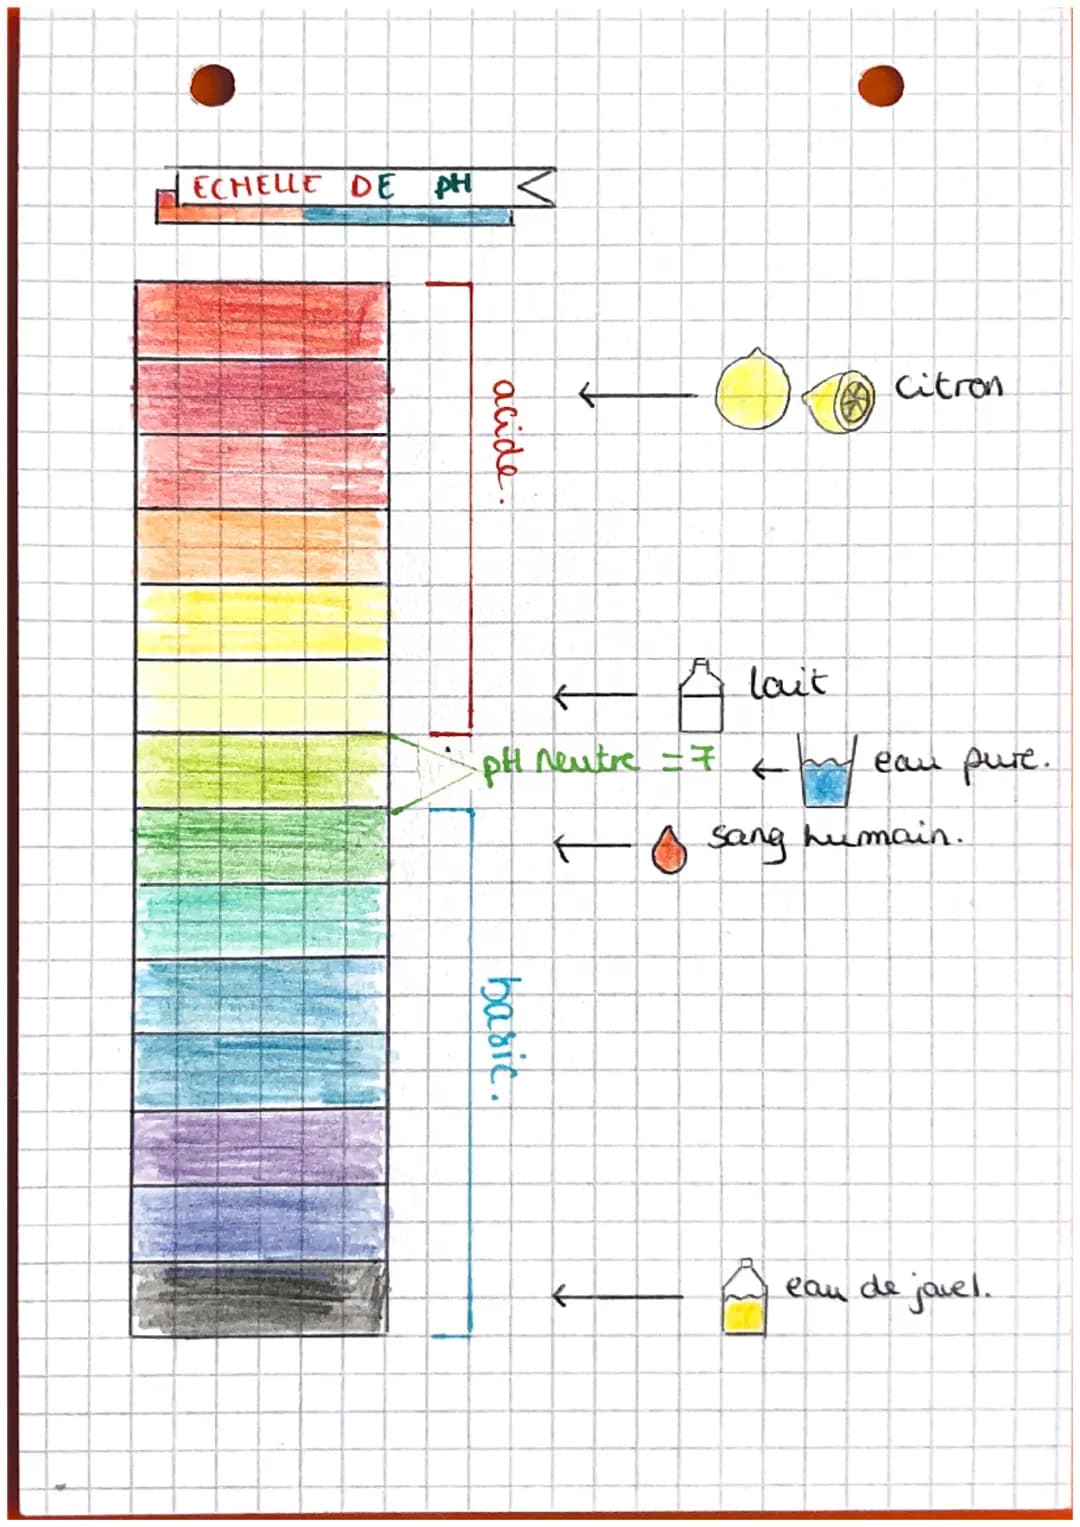 ECHELLE DE pH
acide.
citron
lait
pH neutre = 7
eau pure.
sang humain.
basic.
eau de javel.